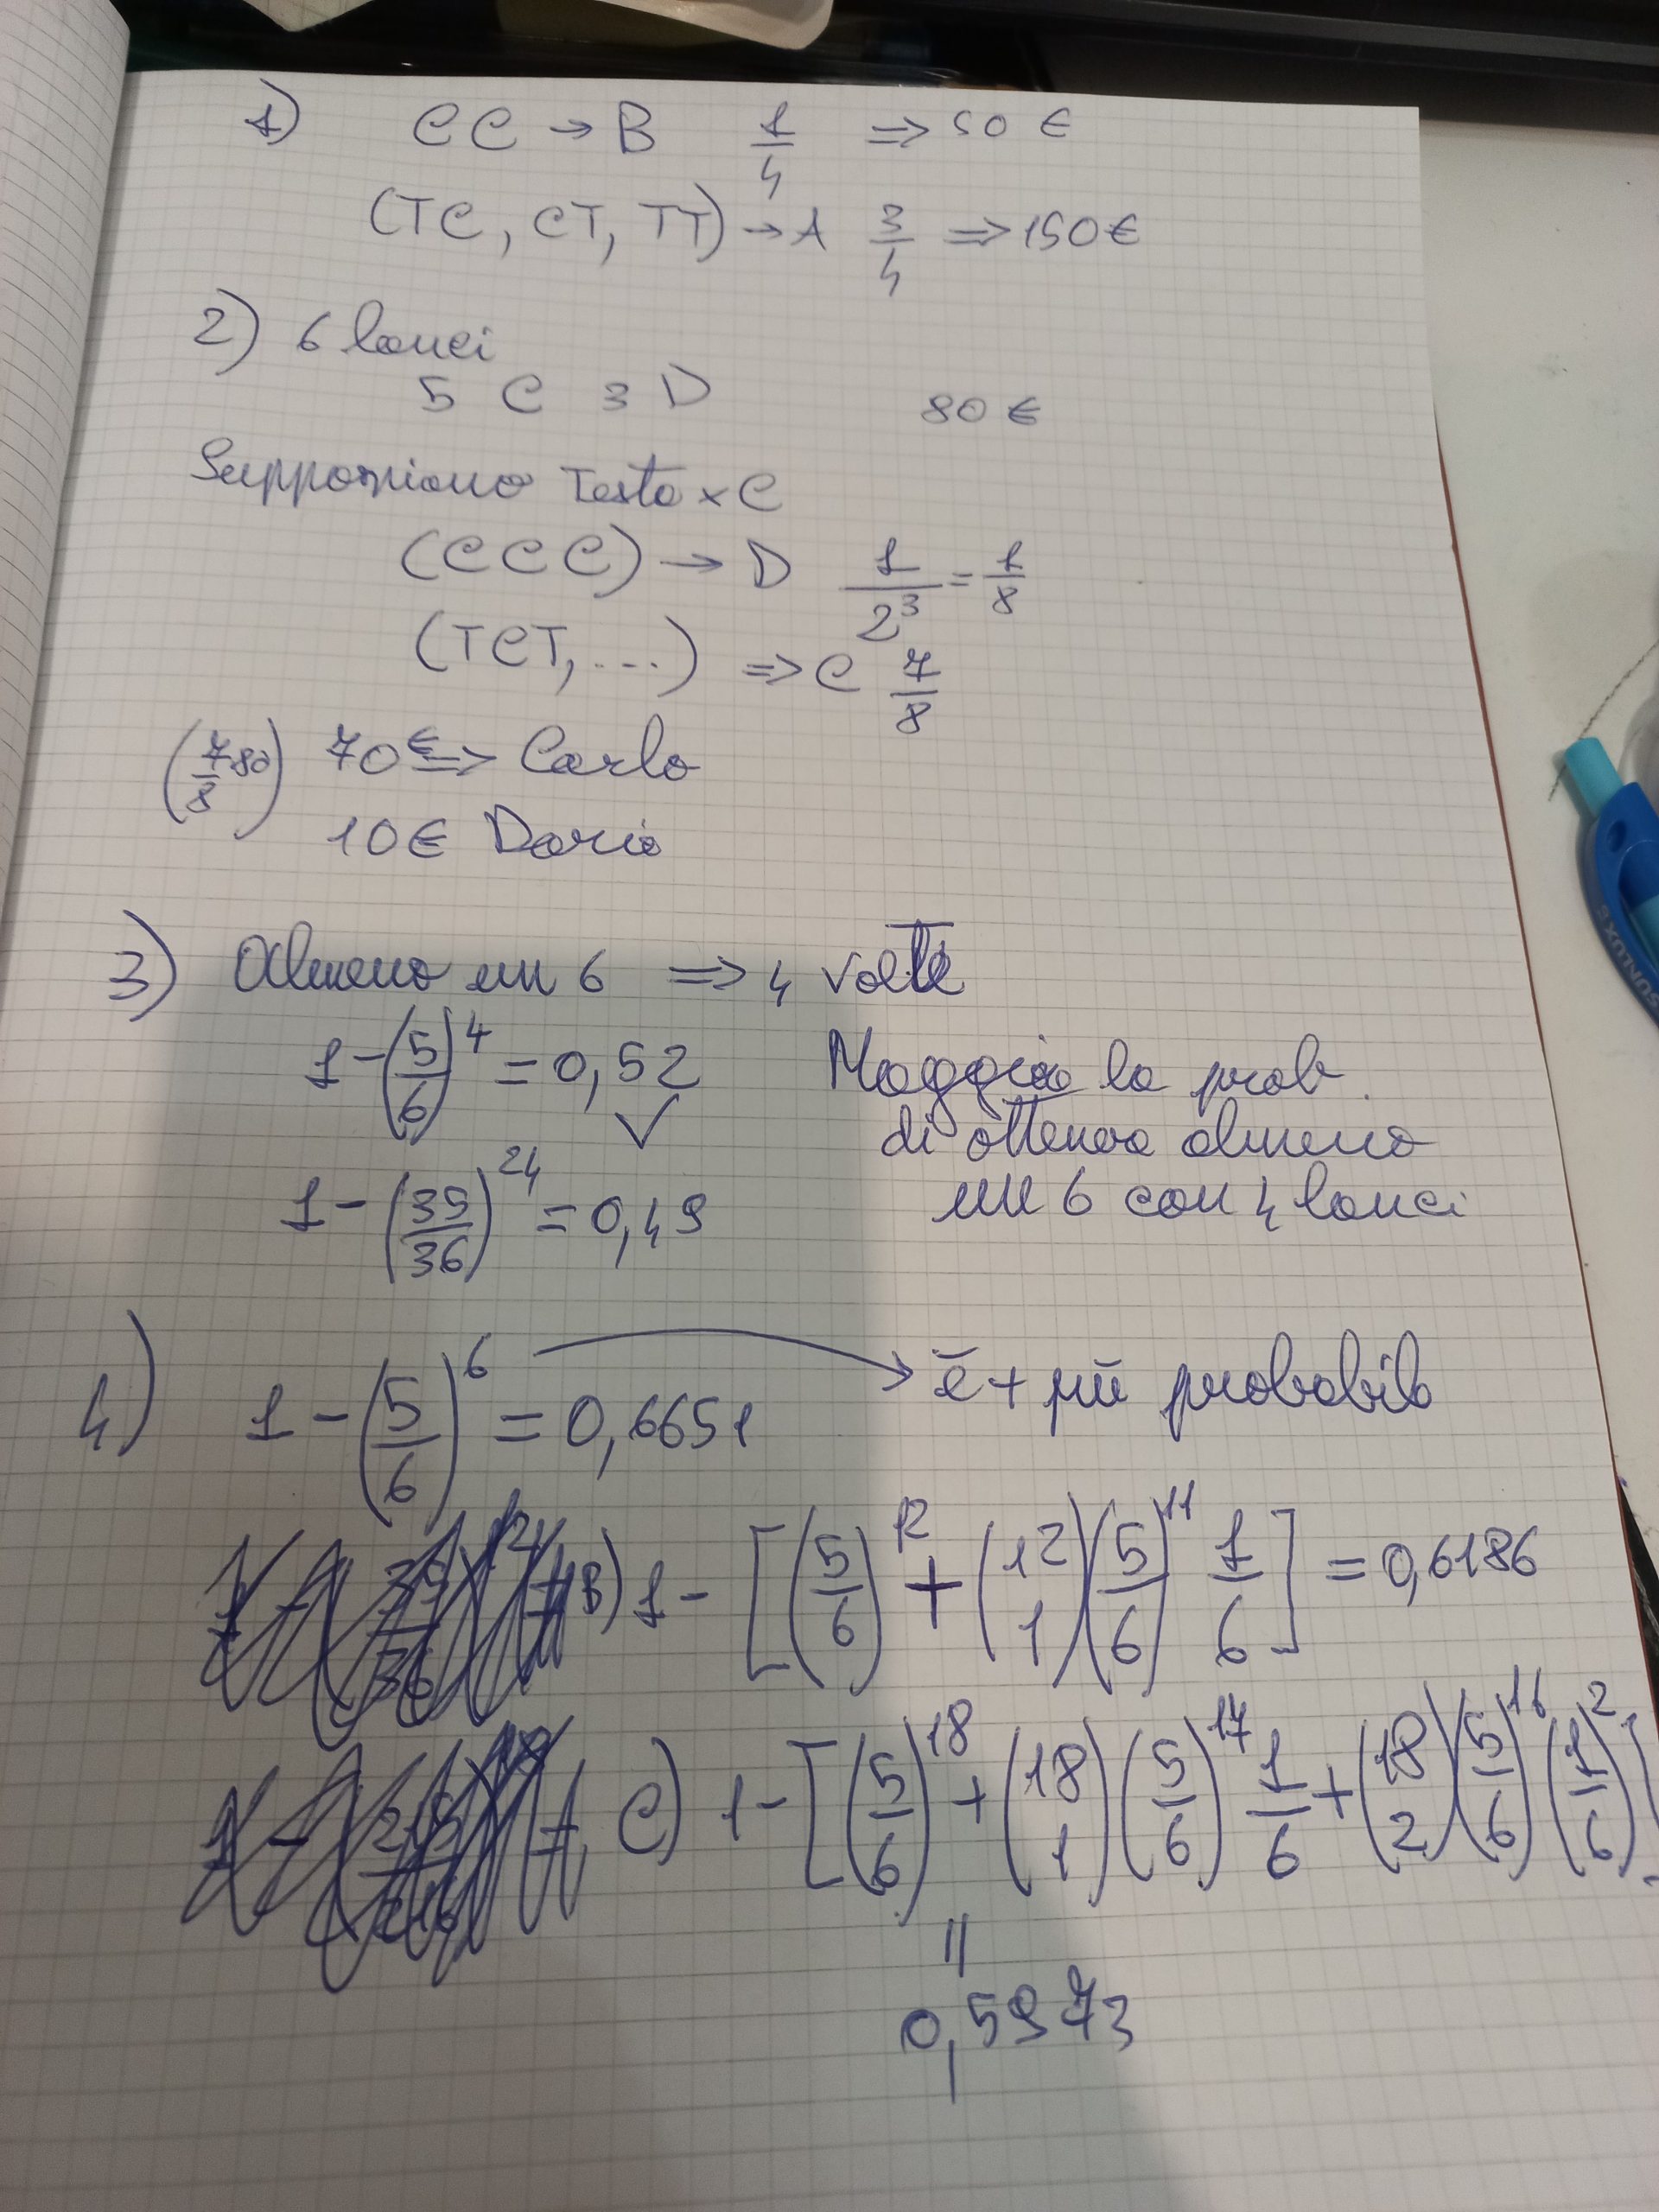 1) CC → B 1/4 ⇒ 50 €
(TC, CT, TT) → A 3/4 ⇒ 150€
2) 6 lanci
5 C 3 D 80 €
Supponiamo Testa x C
(CCC) → D 1/2³ = 1/8
(TCT, ...) ⇒ C 7/8
(7/8 80) 70€ ⇒ Carlo
10€ Dario
3) Almeno un 6 ⇒ 4 volte
1-(5/6)⁴ = 0,52 ✓
Maggiore la prob.
di ottenere almeno
un 6 con 4 lanci
1-(35/36)²⁴ = 0,49
4) 1-(5/6)⁶ = 0,6651 → è + più probabile
B) 1-[(5/6)¹² + (12 1)(5/6)¹¹ 1/6] = 0,6186
C) 1-[(5/6)¹⁸ + (18 1)(5/6)¹⁷ 1/6 + (18 2)(5/6)¹⁶ (1/6)²]
=
0,5973
SUNLUX